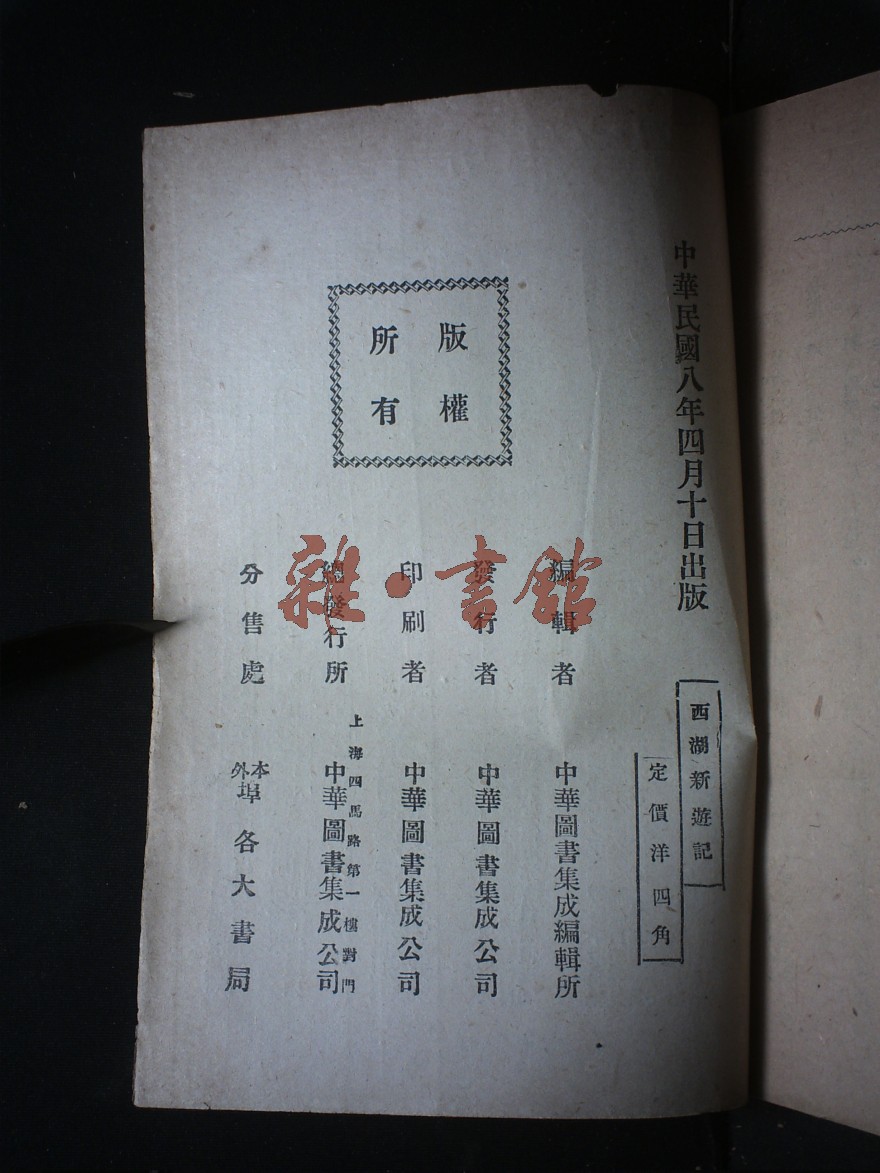 中華民國八年四月十日出版
西湖新遊記
定價洋四角
版權
所有
編輯者 中華圖書集成編輯所
發行者 中華圖書集成公司
印刷者 中華圖書集成公司
總發行所 上海四馬路第一樓對門 中華圖書集成公司
分售處 本外埠各大書局
雜·書館